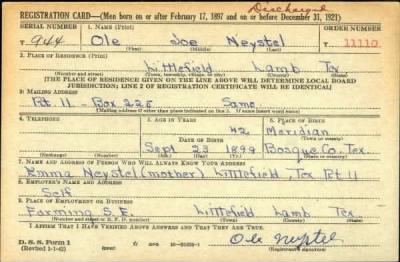 Discharged
REGISTRATION CARD—(Men born on or after February 17, 1897 and on or before December 31, 1921)
SERIAL NUMBER 1. NAME (Print) ORDER NUMBER
T 944 Ole Joe Neystel 11110
(First) (Middle) (Last)
2. PLACE OF RESIDENCE (Print)
Littlefield Lamb Tex
(Number and street) (Town, township, village, or city) (County) (State)
[THE PLACE OF RESIDENCE GIVEN ON THE LINE ABOVE WILL DETERMINE LOCAL BOARD
JURISDICTION; LINE 2 OF REGISTRATION CERTIFICATE WILL BE IDENTICAL]
3. MAILING ADDRESS
Rt. 11 - Box 225 Same
[Mailing address if other than place indicated on line 2. If same insert word same]
4. TELEPHONE 5. AGE IN YEARS 6. PLACE OF BIRTH
42 Meridian
DATE OF BIRTH (Town or county)
Sept 23 1899 Bosque Co. Tex.
(Exchange) (Number) (Mo.) (Day) (Yr.) (State or country)
7. NAME AND ADDRESS OF PERSON WHO WILL ALWAYS KNOW YOUR ADDRESS
Emma Neystel (mother) Littlefield, Tex Rt 11
8. EMPLOYER'S NAME AND ADDRESS
Self
9. PLACE OF EMPLOYMENT OR BUSINESS
Farming S.E. Littlefield Lamb Tex.
(Number and street or R. F. D. number) (Town) (County) (State)
I AFFIRM THAT I HAVE VERIFIED ABOVE ANSWERS AND THAT THEY ARE TRUE.
D. S. S. Form 1
(Revised 1-1-42) (over) Ole Neystel
(Registrant's signature)